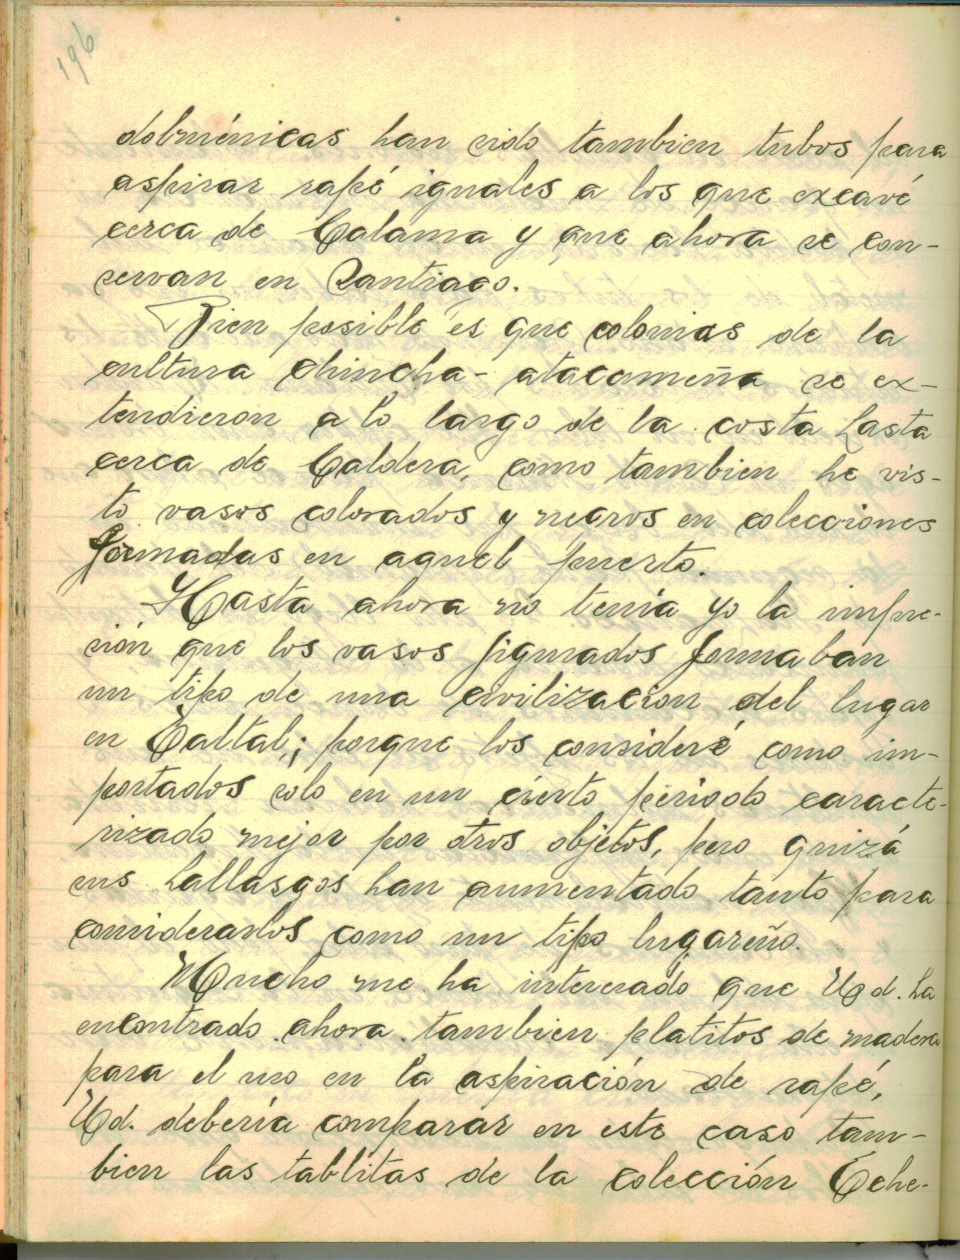 196
dolménicas han sido tambien tubos para
aspirar rapé iguales a los que excavé
cerca de Calama y que ahora se con-
servan en Santiago.
Bien posible és que colonias de la
cultura chincha-atacameña se ex-
tendieron a lo largo de la costa hasta
cerca de Caldera, como tambien he vis-
to vasos colorados y negros en colecciones
formadas en aquel puerto.
Hasta ahora no tenía yo la impre-
sión que los vasos figurados formaban
un tipo de una civilización del lugar
en Taltal; porque los consideré como im-
portados solo en un cierto periodo caracte-
rizado mejor por otros objetos, pero quizá
sus hallasgos han aumentado tanto para
considerarlos como un tipo lugareño.
Mucho me ha interesado que Ud. ha
encontrado ahora tambien platitos de madera
para el uso en la aspiración de rapé,
Ud. debería comparar en este caso tam-
bien las tablitas de la colección Eche-